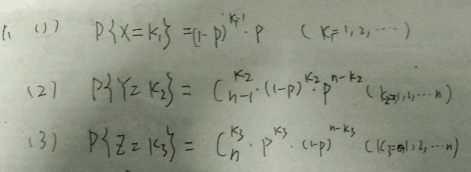 1. (1) P{X=K₁} =(1-p)^(K₁-1)·p (K₁=1,2,···)
(2) P{Y=K₂} = C_(n-1)^(K₂)·(1-p)^(K₂)·p^(n-K₂) (K₂=0,1,2,···n)
(3) P{Z=K₃} = C_n^(K₃)·p^(K₃)·(1-p)^(n-K₃) (K₃=0,1,2,···n)